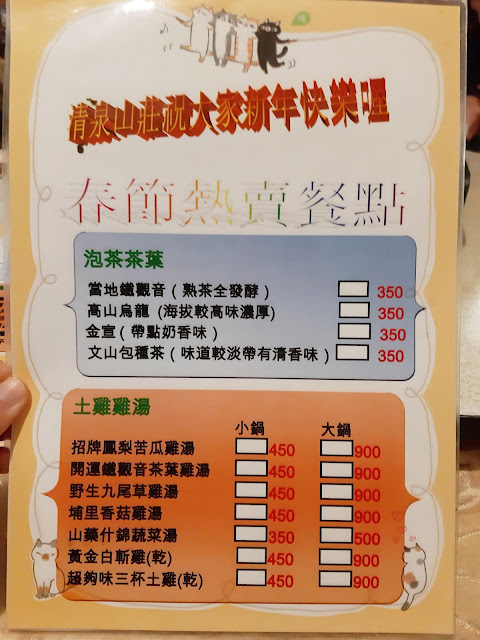 清泉山莊祝大家新年快樂喔
春節熱賣餐點
泡茶茶葉
當地鐵觀音(熟茶全發酵) 350
高山烏龍(海拔較高味濃厚) 350
金宣(帶點奶香味) 350
文山包種茶(味道較淡帶有清香味) 350
土雞雞湯
小鍋 大鍋
招牌鳳梨苦瓜雞湯 450 900
開運鐵觀音茶葉雞湯 450 900
野生九尾草雞湯 450 900
埔里香菇雞湯 450 900
山藥什錦蔬菜湯 350 500
黃金白斬雞(乾) 450 900
超夠味三杯土雞(乾) 450 900